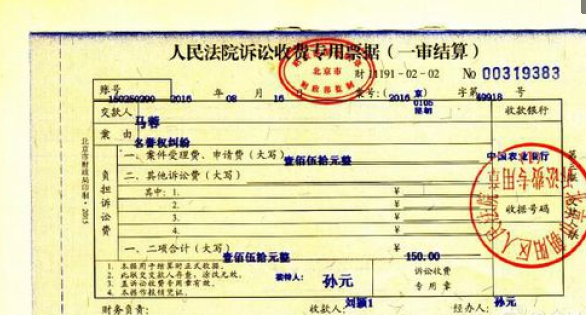 人民法院诉讼收费专用票据（一审结算）
北京市
财政部监制
财 J1191-02-02 No 00319383
账号
150250200 2016 年 08 月 16 日 案号:( 2016 ) 京0105陈朝 字第 49918 号
交款人 马蓉 收款银行
案由 名誉权纠纷
一、案件受理费、申请费（大写） 壹佰伍拾元整 中国农业银行
负担诉讼费
二、其他诉讼费（大写）
其中：1. ¥
2. ¥
3. ¥
4. ¥
收据号码
一、二项合计（大写） 壹佰伍拾元整 ¥ 150.00
诉讼收费
专用章
1．本据用于结算时正式收据。
2．此联交交款人存查，涂改无效。
3．盖诉讼收费专用章有效。
4．本据作报销凭证。
孙元
北京市财政局印制·2015
朝阳区人民法院
诉讼费专用章
财务负责： 收款人： 刘颖1 经办人： 孙元